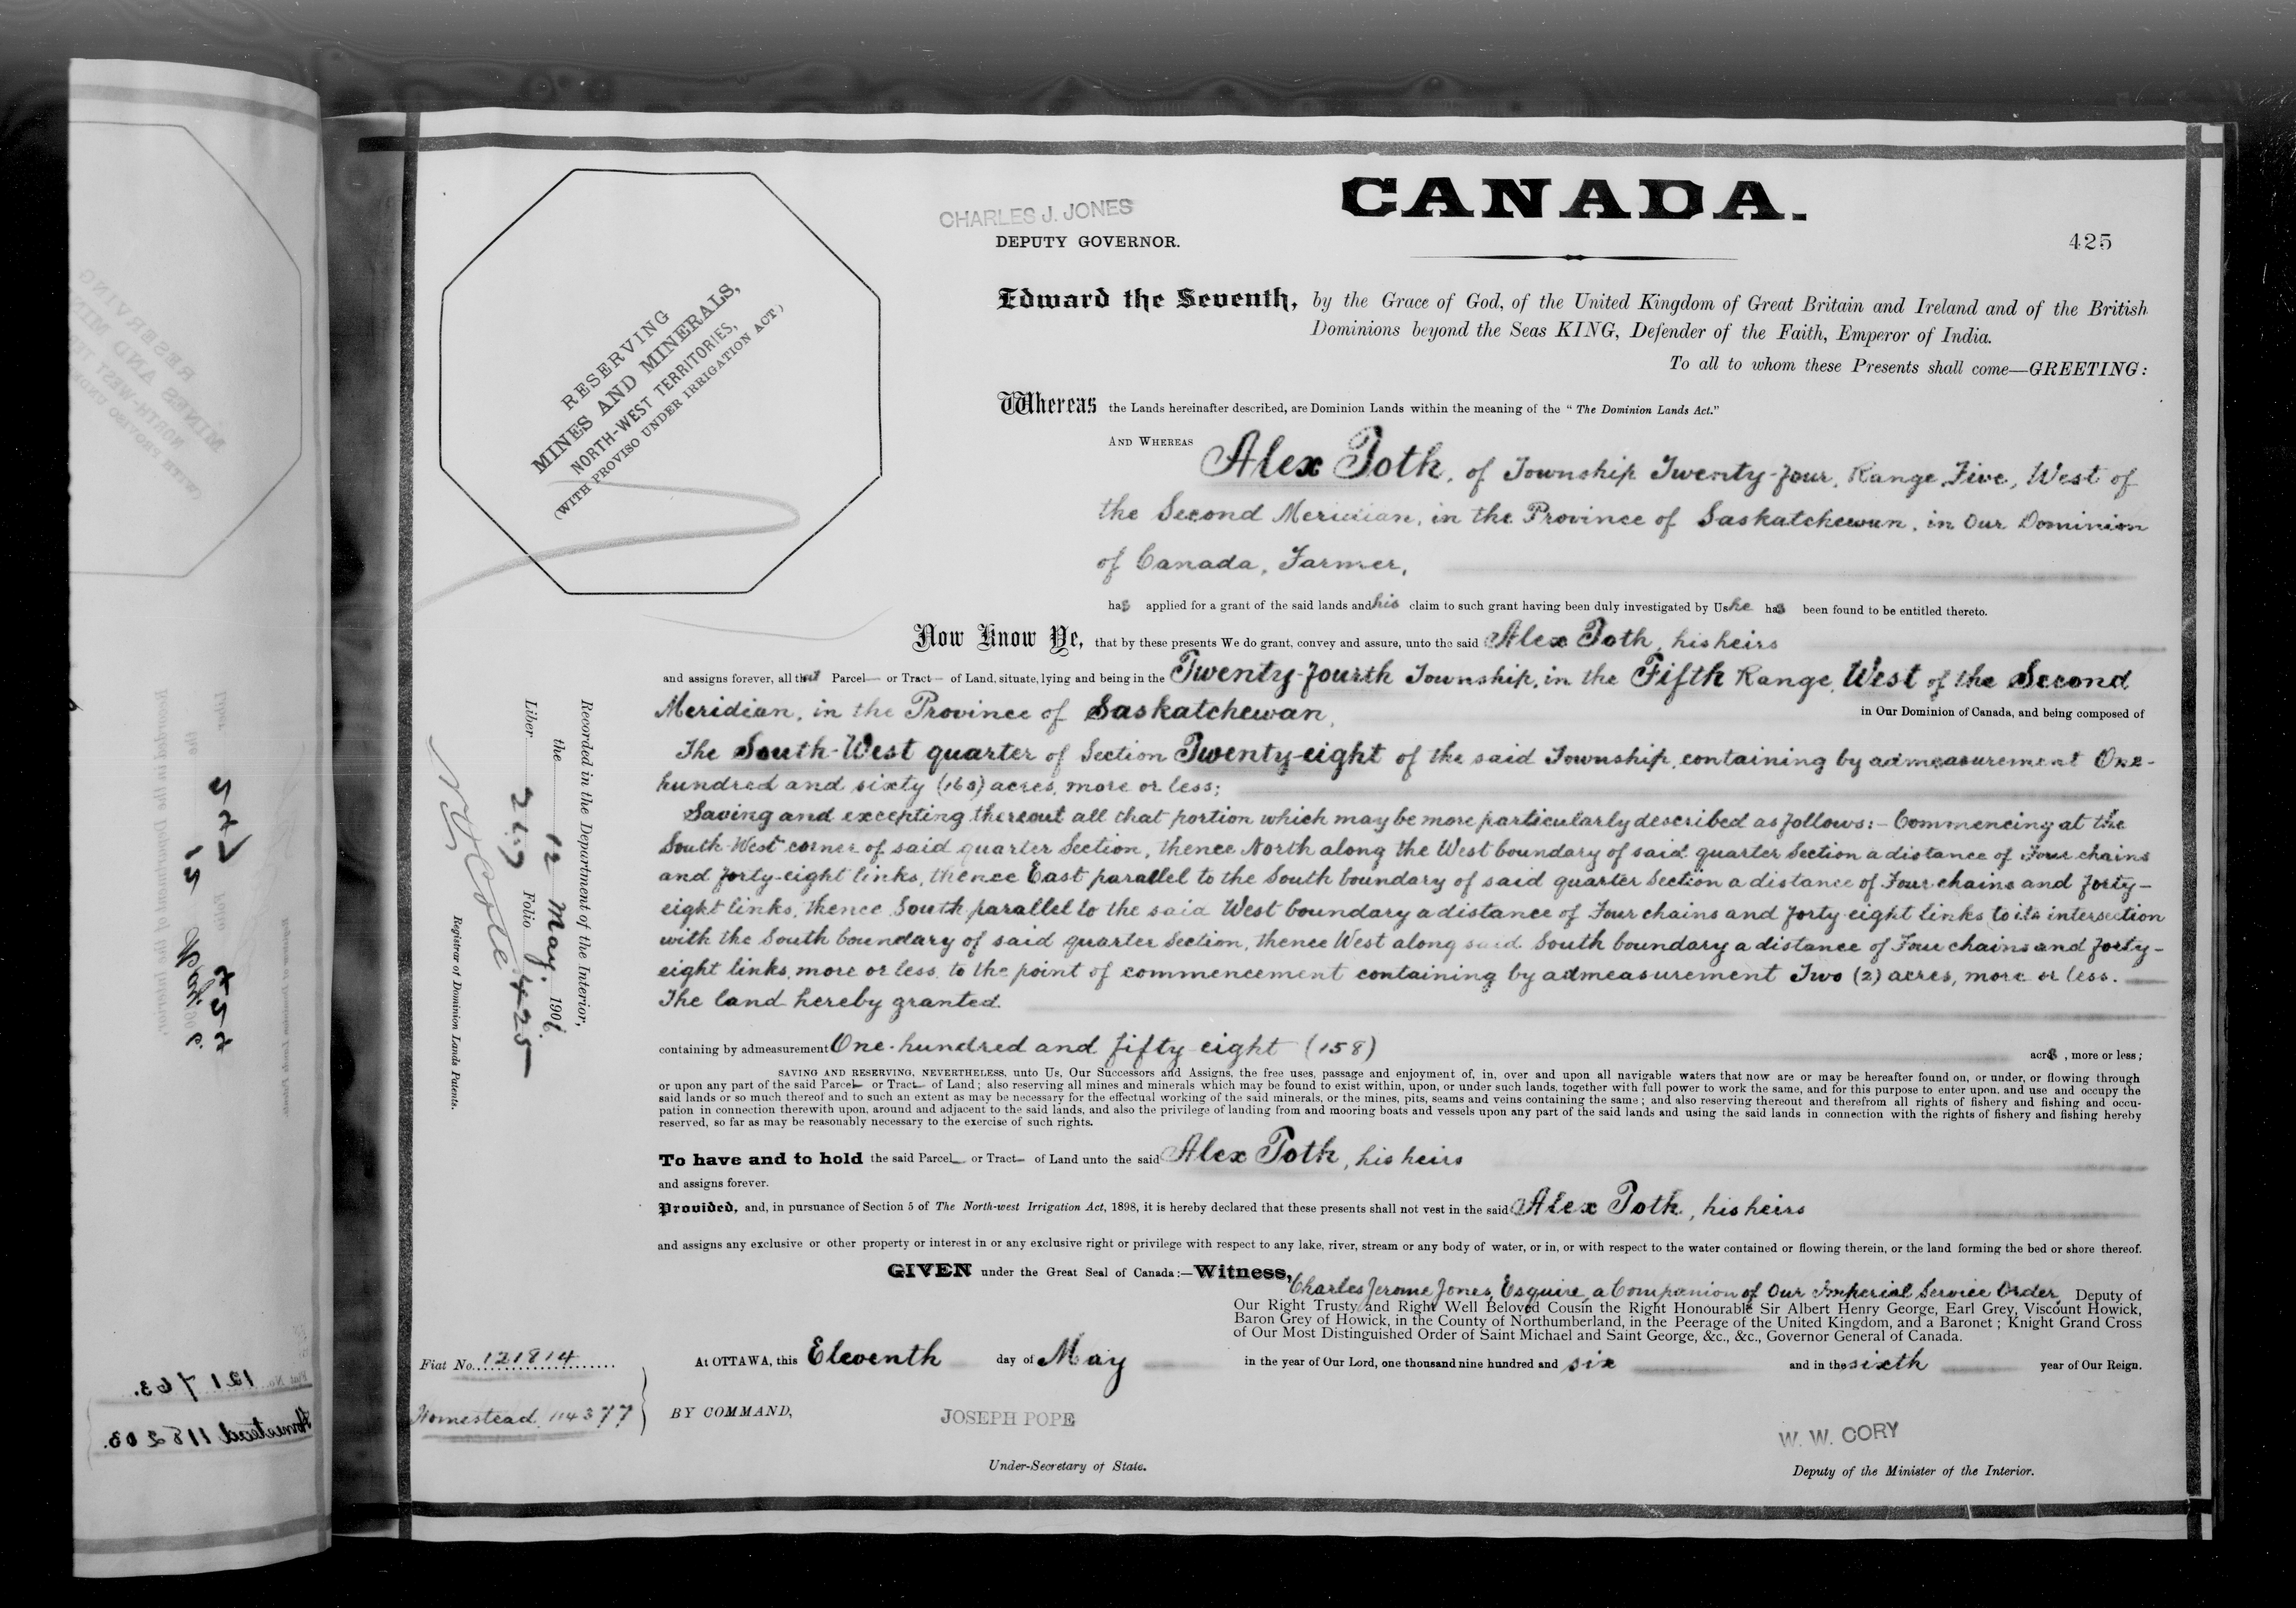 CANADA.
CHARLES J. JONES
DEPUTY GOVERNOR.
425
RESERVING
MINES AND MINERALS,
NORTH-WEST TERRITORIES,
(WITH PROVISO UNDER IRRIGATION ACT)
Edward the Seventh, by the Grace of God, of the United Kingdom of Great Britain and Ireland and of the British
Dominions beyond the Seas KING, Defender of the Faith, Emperor of India.
To all to whom these Presents shall come—GREETING:
Whereas the Lands hereinafter described, are Dominion Lands within the meaning of the "The Dominion Lands Act."
AND WHEREAS Alex Toth, of Township Twenty-four, Range Five, West of
the Second Meridian, in the Province of Saskatchewan, in Our Dominion
of Canada, Farmer,
has applied for a grant of the said lands and his claim to such grant having been duly investigated by Us he has been found to be entitled thereto.
Now Know Ye, that by these presents We do grant, convey and assure, unto the said Alex Toth, his heirs
and assigns forever, all that Parcel— or Tract— of Land, situate, lying and being in the Twenty-fourth Township, in the Fifth Range, West of the Second
Meridian, in the Province of Saskatchewan, in Our Dominion of Canada, and being composed of
The South-West quarter of Section Twenty-eight of the said Township, containing by admeasurement One-
hundred and sixty (160) acres, more or less;
Saving and excepting thereout all that portion which may be more particularly described as follows:- Commencing at the
South-West corner of said quarter Section, thence North along the West boundary of said quarter Section a distance of Four chains
and forty-eight links, thence East parallel to the South boundary of said quarter Section a distance of Four chains and forty-
eight links, thence South parallel to the said West boundary a distance of Four chains and forty-eight links to its intersection
with the South boundary of said quarter Section, thence West along said South boundary a distance of Four chains and forty-
eight links, more or less, to the point of commencement containing by admeasurement Two (2) acres, more or less.
The land hereby granted.
containing by admeasurement One-hundred and fifty eight (158) acres, more or less;
SAVING AND RESERVING, NEVERTHELESS, unto Us, Our Successors and Assigns, the free uses, passage and enjoyment of, in, over and upon all navigable waters that now are or may be hereafter found on, or under, or flowing through
or upon any part of the said Parcel— or Tract— of Land; also reserving all mines and minerals which may be found to exist within, upon, or under such lands, together with full power to work the same, and for this purpose to enter upon, and use and occupy the
said lands or so much thereof and to such an extent as may be necessary for the effectual working of the said minerals, or the mines, pits, seams and veins containing the same; and also reserving thereout and therefrom all rights of fishery and fishing and occu-
pation in connection therewith upon, around and adjacent to the said lands, and also the privilege of landing from and mooring boats and vessels upon any part of the said lands and using the said lands in connection with the rights of fishery and fishing hereby
reserved, so far as may be reasonably necessary to the exercise of such rights.
To have and to hold the said Parcel— or Tract— of Land unto the said Alex Toth, his heirs
and assigns forever.
Provided, and, in pursuance of Section 5 of The North-west Irrigation Act, 1898, it is hereby declared that these presents shall not vest in the said Alex Toth, his heirs
and assigns any exclusive or other property or interest in or any exclusive right or privilege with respect to any lake, river, stream or any body of water, or in, or with respect to the water contained or flowing therein, or the land forming the bed or shore thereof.
GIVEN under the Great Seal of Canada:—Witness, Charles Jerome Jones, Esquire, a Companion of Our Imperial Service Order, Deputy of
Our Right Trusty and Right Well Beloved Cousin the Right Honourable Sir Albert Henry George, Earl Grey, Viscount Howick,
Baron Grey of Howick, in the County of Northumberland, in the Peerage of the United Kingdom, and a Baronet; Knight Grand Cross
of Our Most Distinguished Order of Saint Michael and Saint George, &c., &c., Governor General of Canada.
At OTTAWA, this Eleventh day of May in the year of Our Lord, one thousand nine hundred and six and in the sixth year of Our Reign.
BY COMMAND,
JOSEPH POPE
Under-Secretary of State.
W. W. CORY
Deputy of the Minister of the Interior.
Fiat No. 121814
Homestead 114377
Recorded in the Department of the Interior,
the 12 May, 1906.
Liber 217 Folio 425
Registrar of Dominion Lands Patents.
Fiat No. 121763.
Homestead 118203.